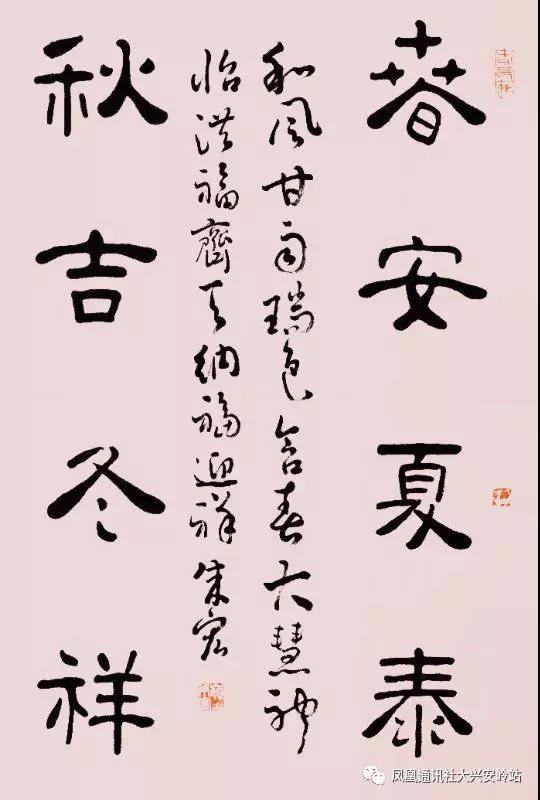 春安夏泰
和風甘雨瑞色含春大慧神
怡洪福齊天納福迎祥 朱宏
秋吉冬祥
凤凰通讯社大兴安岭站